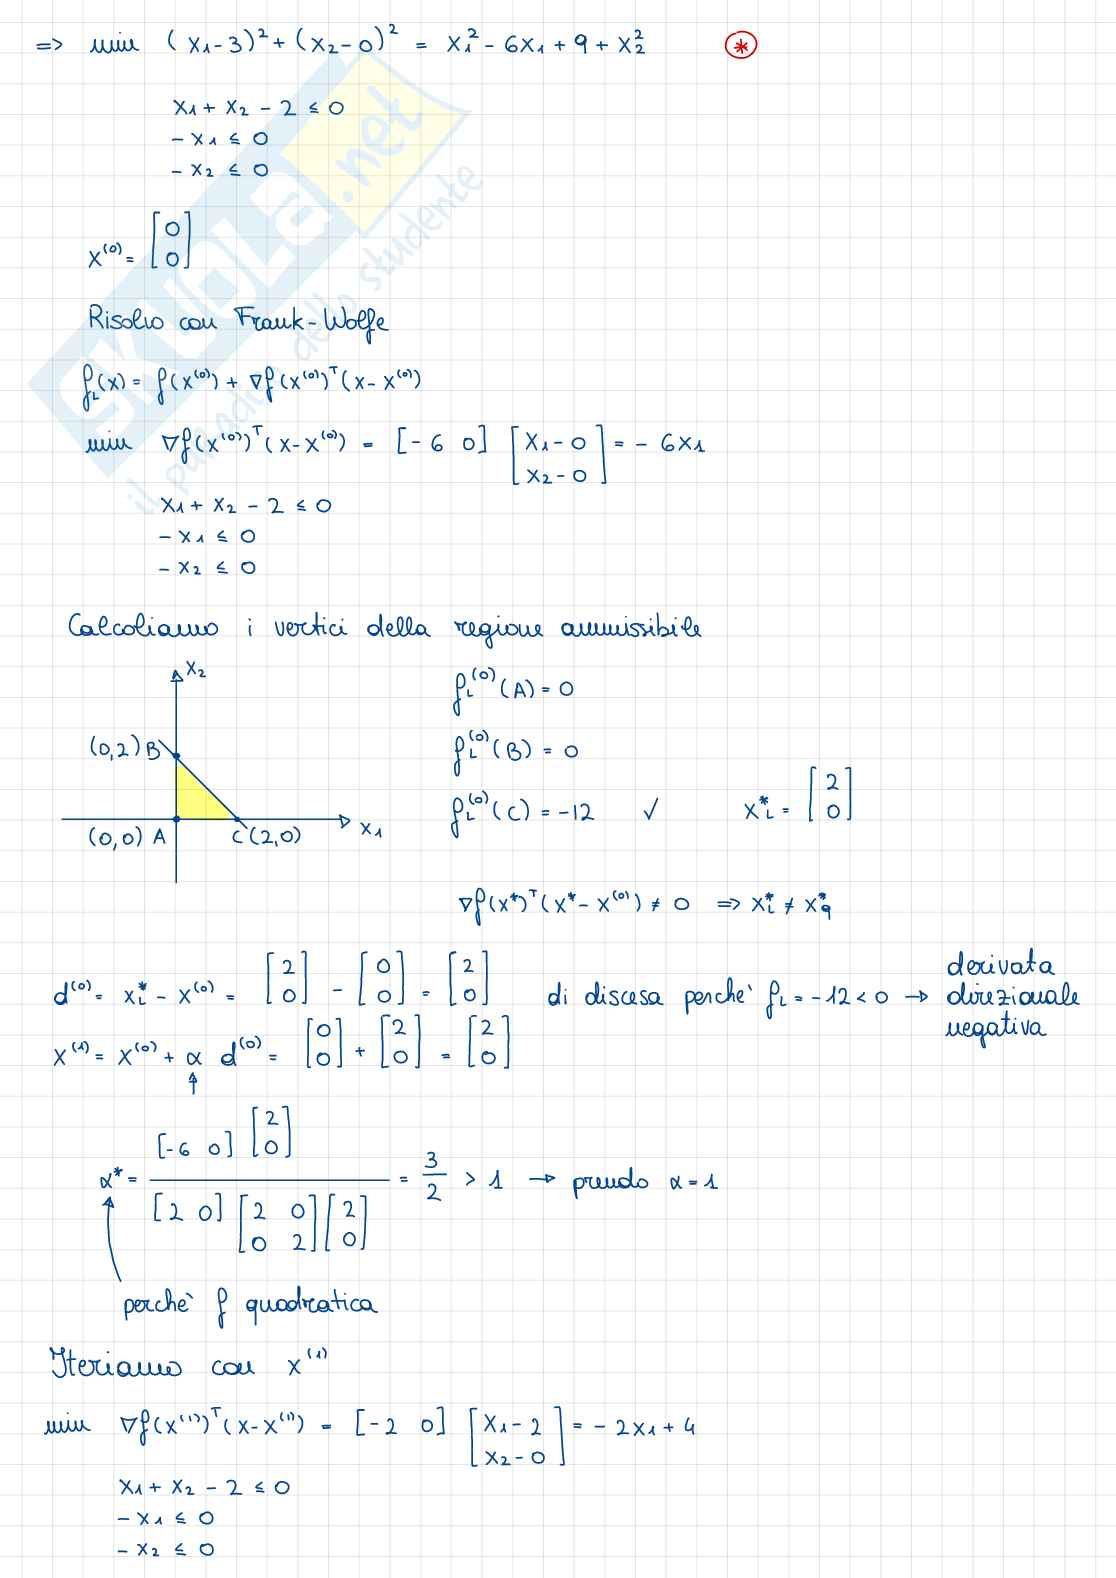 => min (x₁-3)² + (x₂-0)² = x₁² - 6x₁ + 9 + x₂² (*)
x₁ + x₂ - 2 ≤ 0
- x₁ ≤ 0
- x₂ ≤ 0
x⁽⁰⁾ = [0 0]
Risolvo con Frank-Wolfe
f_L(x) = f(x⁽⁰⁾) + ∇f(x⁽⁰⁾)ᵀ(x - x⁽⁰⁾)
min ∇f(x⁽⁰⁾)ᵀ(x - x⁽⁰⁾) = [-6 0] [x₁-0 x₂-0] = - 6x₁
x₁ + x₂ - 2 ≤ 0
- x₁ ≤ 0
- x₂ ≤ 0
Calcoliamo i vertici della regione ammissibile
x₂
(0,2) B
(0,0) A
C (2,0)
x₁
f_L⁽⁰⁾(A) = 0
f_L⁽⁰⁾(B) = 0
f_L⁽⁰⁾(C) = -12 ✓ x*_L = [2 0]
∇f(x*)ᵀ(x* - x⁽⁰⁾) ≠ 0 => x*_L ≠ x*_q
d⁽⁰⁾ = x*_L - x⁽⁰⁾ = [2 0] - [0 0] = [2 0] di discesa perchè f_L = -12 < 0 → derivata direzionale negativa
x⁽¹⁾ = x⁽⁰⁾ + α d⁽⁰⁾ = [0 0] + [2 0] = [2 0]
↑
α* = [-6 0] [2 0] / [2 0] [2 0 0 2] [2 0] = 3/2 > 1 → prendo α = 1
perchè f quadratica
Iteriamo con x⁽¹⁾
min ∇f(x⁽¹⁾)ᵀ(x - x⁽¹⁾) = [-2 0] [x₁-2 x₂-0] = - 2x₁ + 4
x₁ + x₂ - 2 ≤ 0
- x₁ ≤ 0
- x₂ ≤ 0
SKUOLA.net
il paradiso dello studente